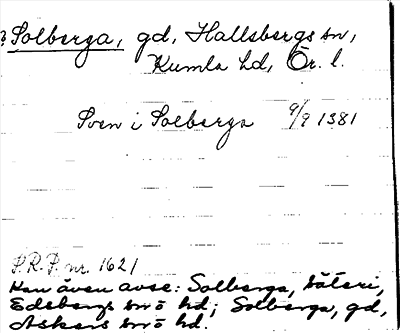 ? Solberga, gd, Hallsbergs sn,
Kumla hd, Ör. l.
Sven i Solberga 9/9 1381
P.R.P. nr. 1621
Kan även avse: Solberga, säteri,
Edsbergs snö hd; Solberga, gd,
Askers snö hd.